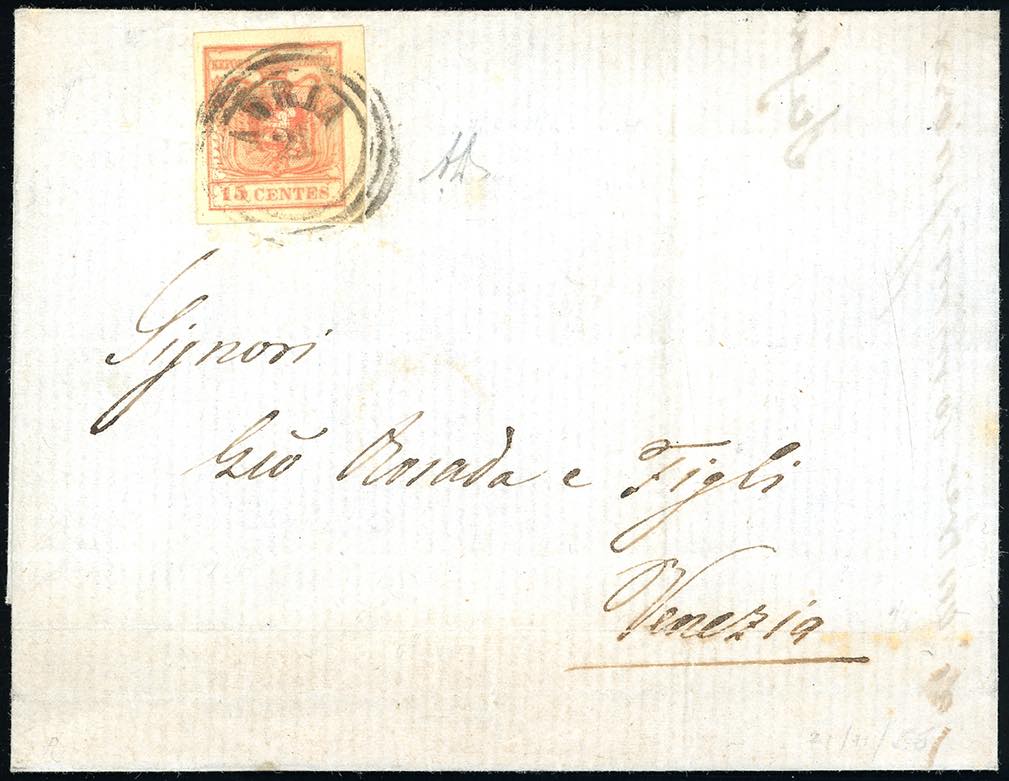 ADRIA
15 CENTES
Signori
Gio Rosada e Figli
Venezia
21/11/55